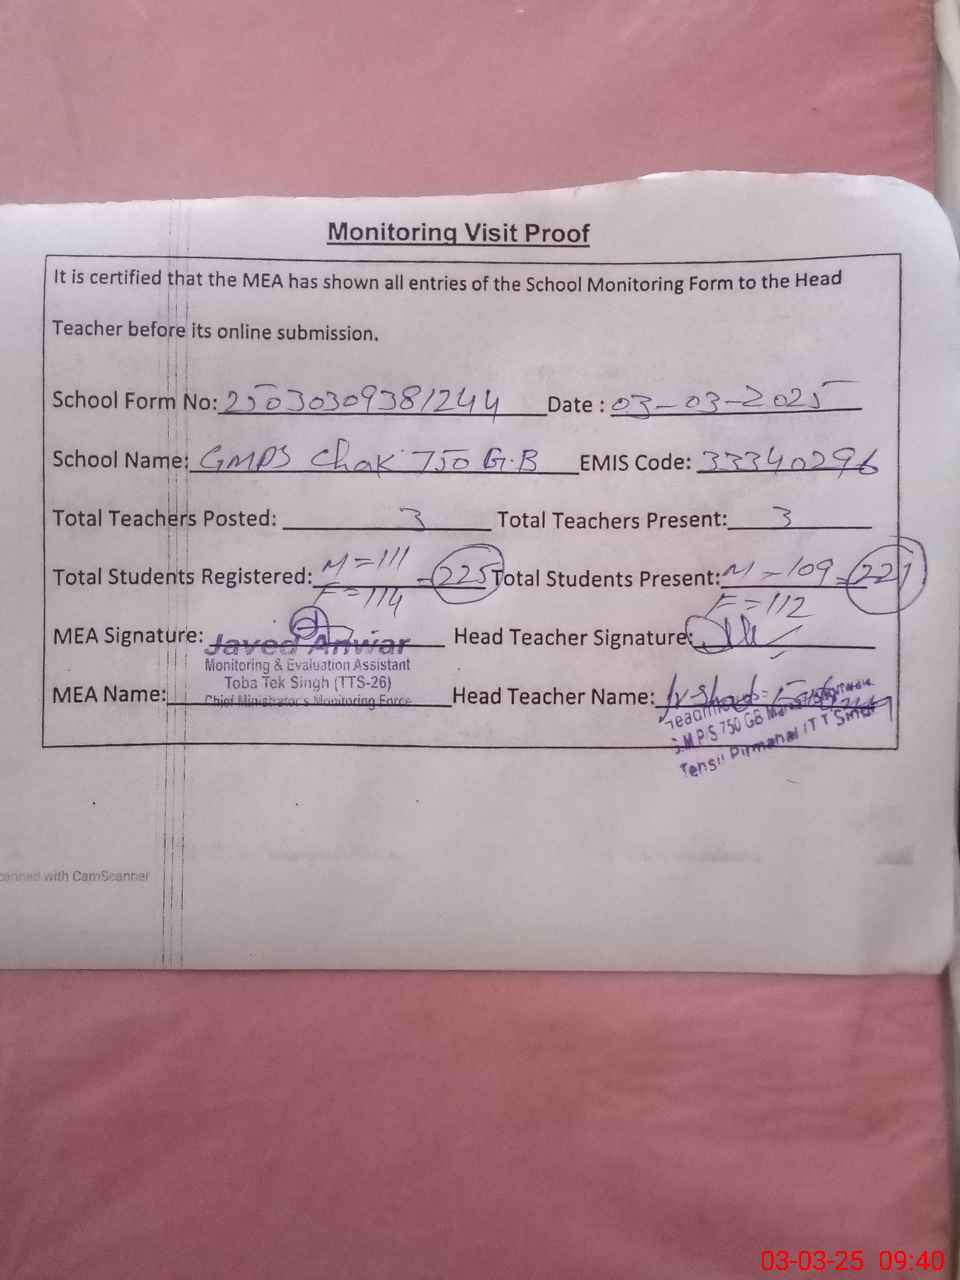 Monitoring Visit Proof
It is certified that the MEA has shown all entries of the School Monitoring Form to the Head
Teacher before its online submission.
School Form No: 25030309381244 Date : 03-03-2025
School Name: GMPS Chak 750 G.B EMIS Code: 33340296
Total Teachers Posted: 3 Total Teachers Present: 3
M = 111 M - 109
Total Students Registered: = 225 Total Students Present: = 221
F = 114 F = 112
MEA Signature: Head Teacher Signature:
Javed Anwar
Monitoring & Evaluation Assistant
Toba Tek Singh (TTS-26)
Chief Minister's Monitoring Force
MEA Name: Head Teacher Name:
G.M.P.S 750 GB
Tehsil Pirmahal (T T Singh
canned with CamScanner
03-03-25 09:40